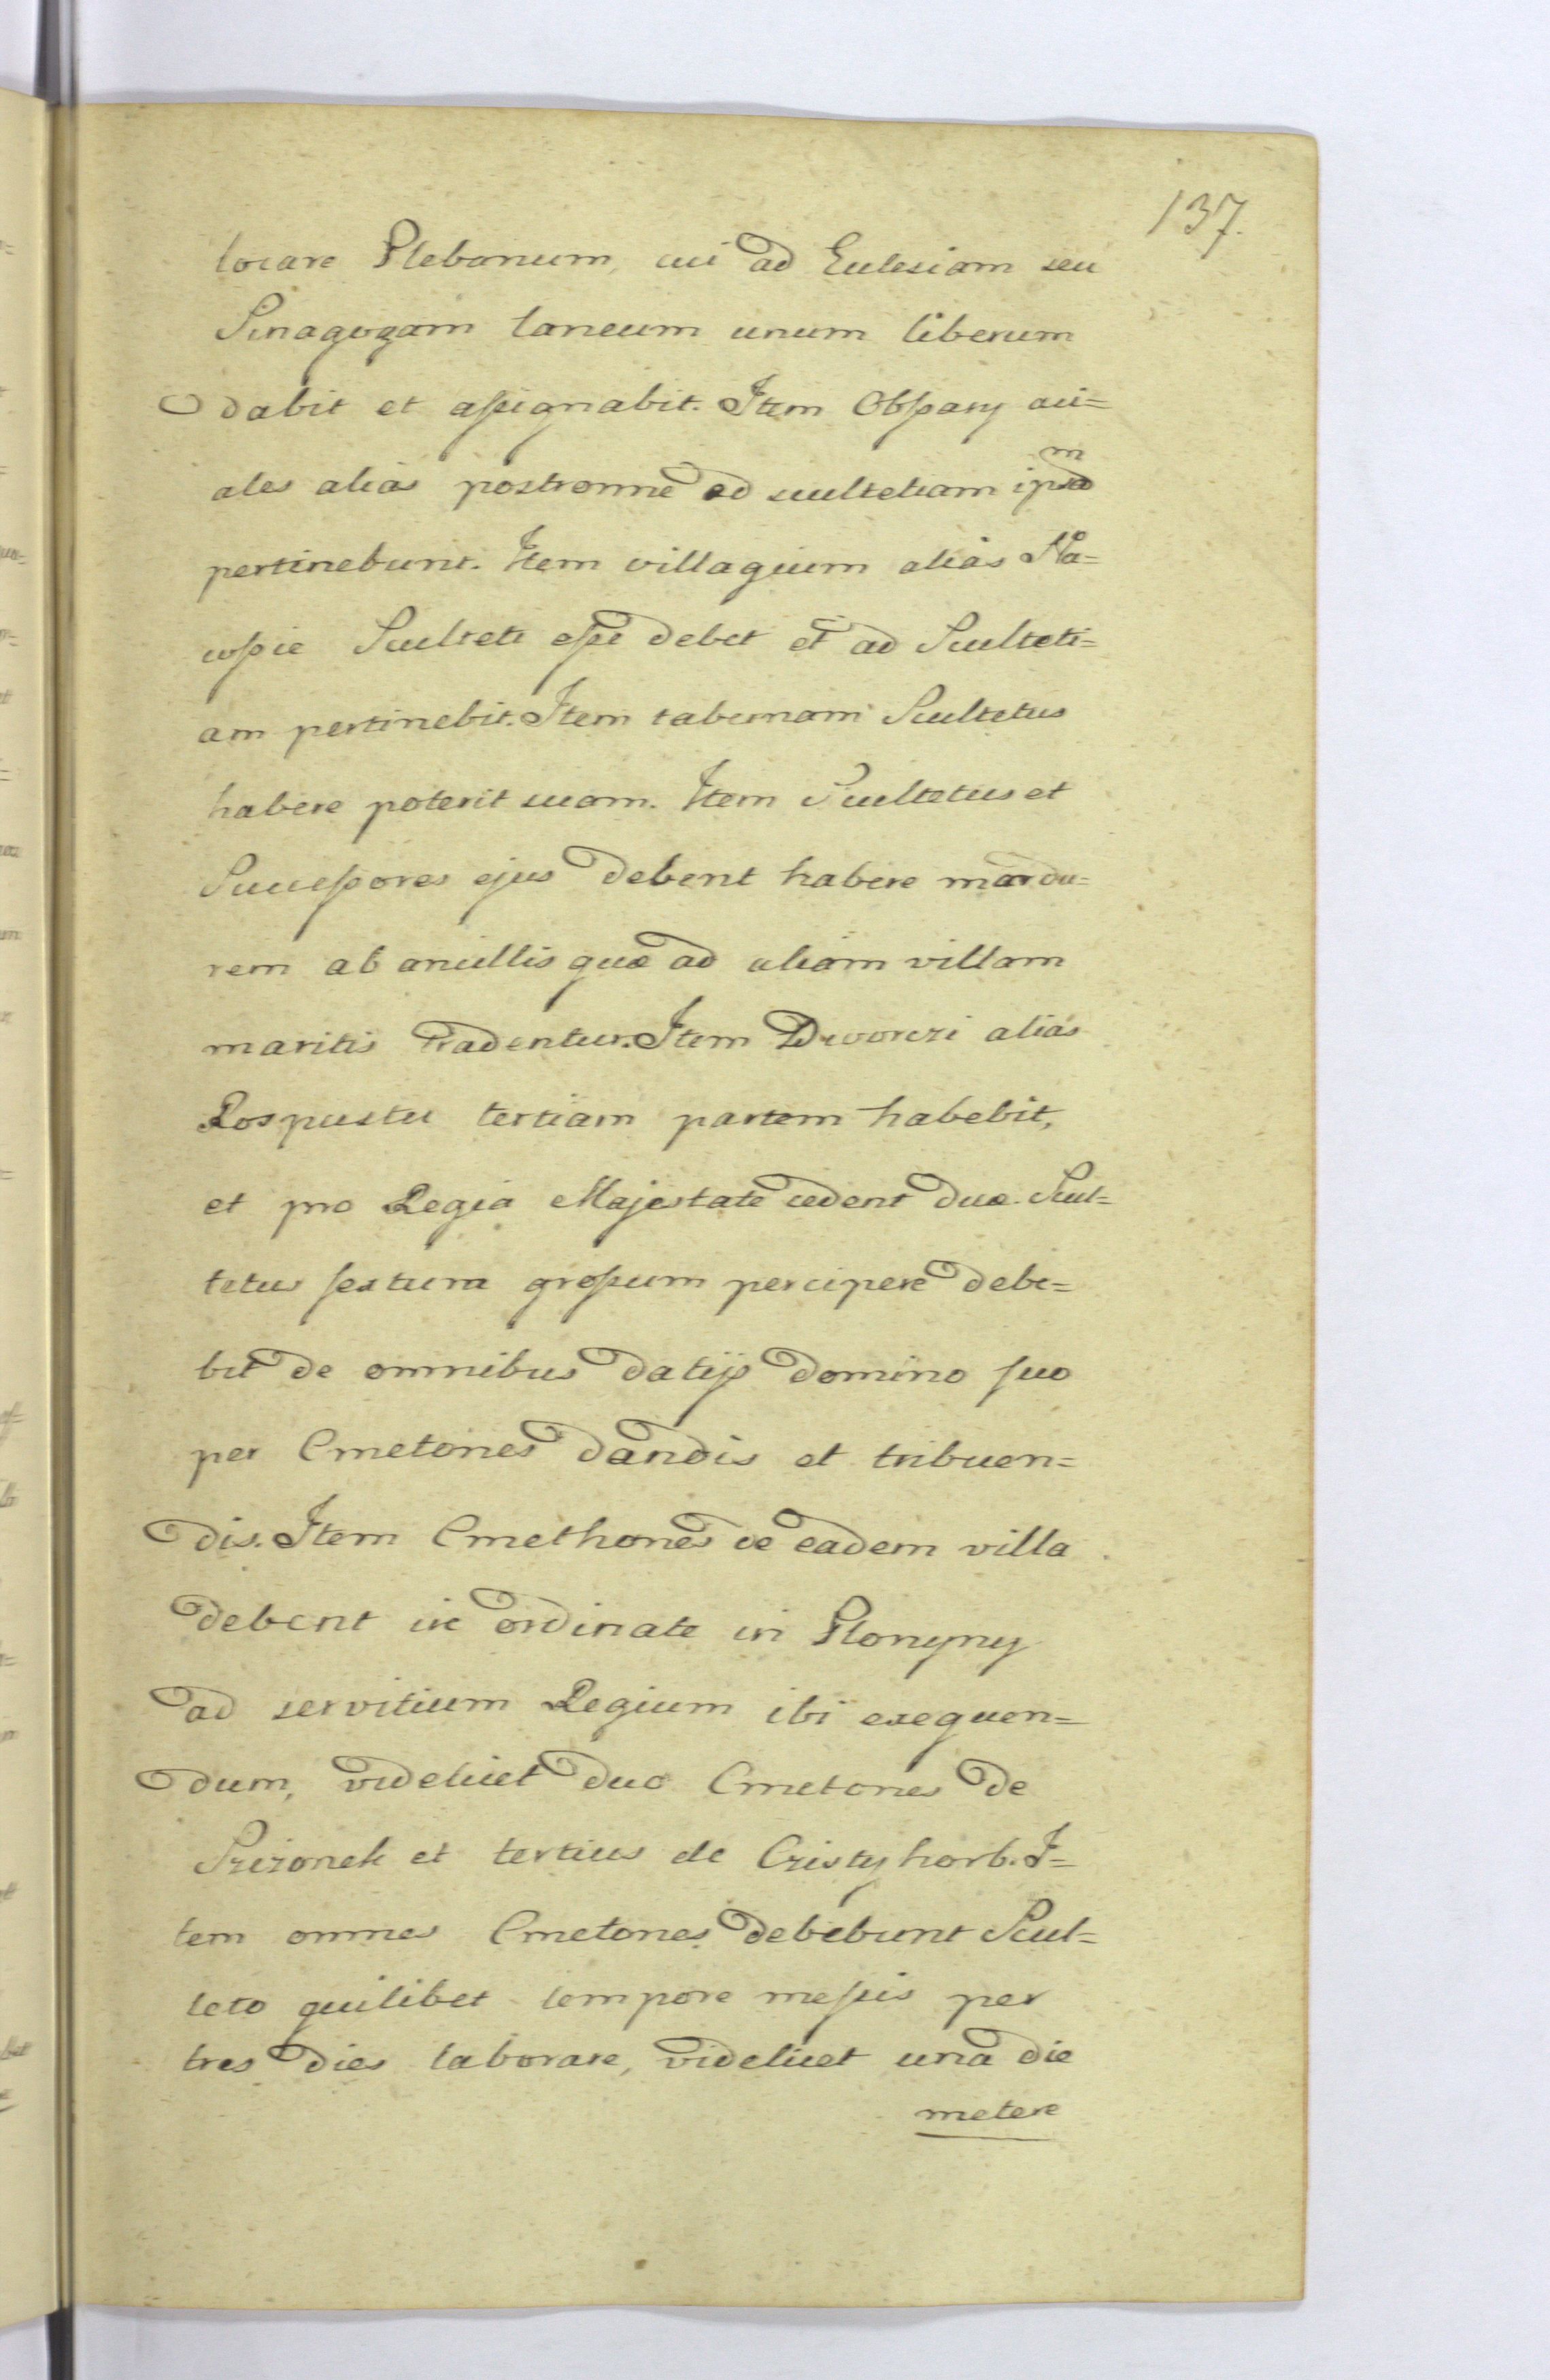 137.
locare Plebanum, cui ad Ecclesiam seu
Sinagogam laneum unum liberum
dabit et aſsignabit. Item Obſsary aci=
ales alias postronne ad scultetiam ipsam
pertinebunt. Item villagium aliàs Na=
wſsie Sculteti eſse debet et ad Sculteti=
am pertinebit. Item tabernam Scultetus
habere poterit suam. Item Scultetus et
Succeſsores ejus debent habere mardu=
rem ab ancillis quæ ad aliam villam
maritis tradentur. Item Dworczi aliàs
Rospustu tertiam partem habebit,
et pro Regia Majestate cedent duæ. Scul=
tetus ſextum groſsum percipere debe=
bit de omnibus datijs domino ſuo
per Cmetones dandis et tribuen=
dis. Item Cmethones de eadem villa
debent ire ordinate in Plonyny
ad servitium Regium ibi exequen=
dum, videlicet duo Cmetones de
Szizonek et tertius de Czistyhorb. I=
tem omnes Cmetones debebunt Scul=
teto quilibet tempore meſsis per
tres dies laborare, videlicet una die
metere